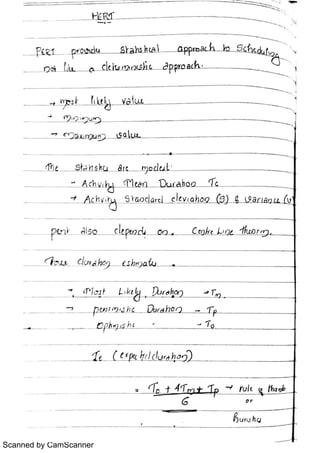 PERT
PERT provides Statistical approach to Scheduling
not like a deterministic approach.
→ most likely value
→ minimum
→ maximum value
The statistics are model
- Activity Mean Duration Te
→ Activity Standard deviation (S) & Variance (V)
pert also depend on Centre Line theorm.
Three duration estimate
→ Most Likely Duration → Tm
→ pessimistic Duration → Tp
Optimistic " - To
Te (expected duration)
= To + 4Tm + Tp → rule of thumb
6 or
Scanned by CamScanner